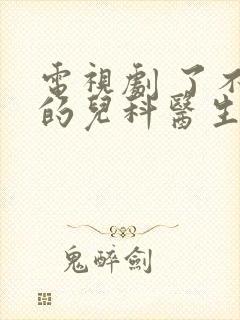 電視劇了不
的兒科醫生
鬼醉劍